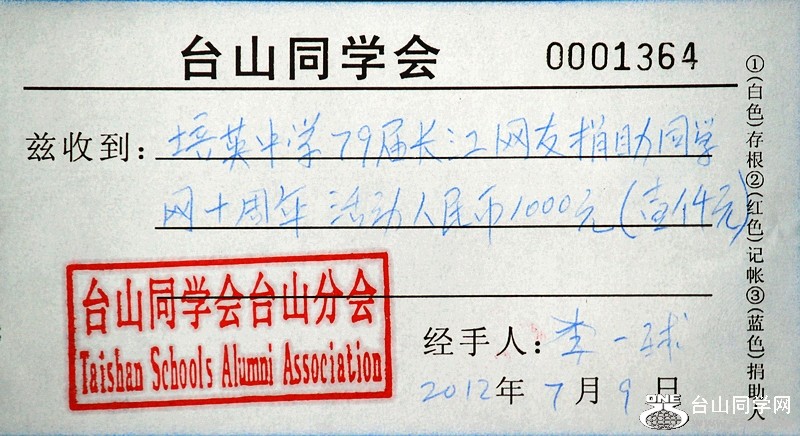 台山同学会
0001364
兹收到：培英中学79届长江网友捐助同学
网十周年活动人民币1000元(壹仟元)
台山同学会台山分会
Taishan Schools Alumni Association
经手人：李一球
2012年7月9日
①(白色)存根②(红色)记帐③(蓝色)捐助人
ONE
台山同学网